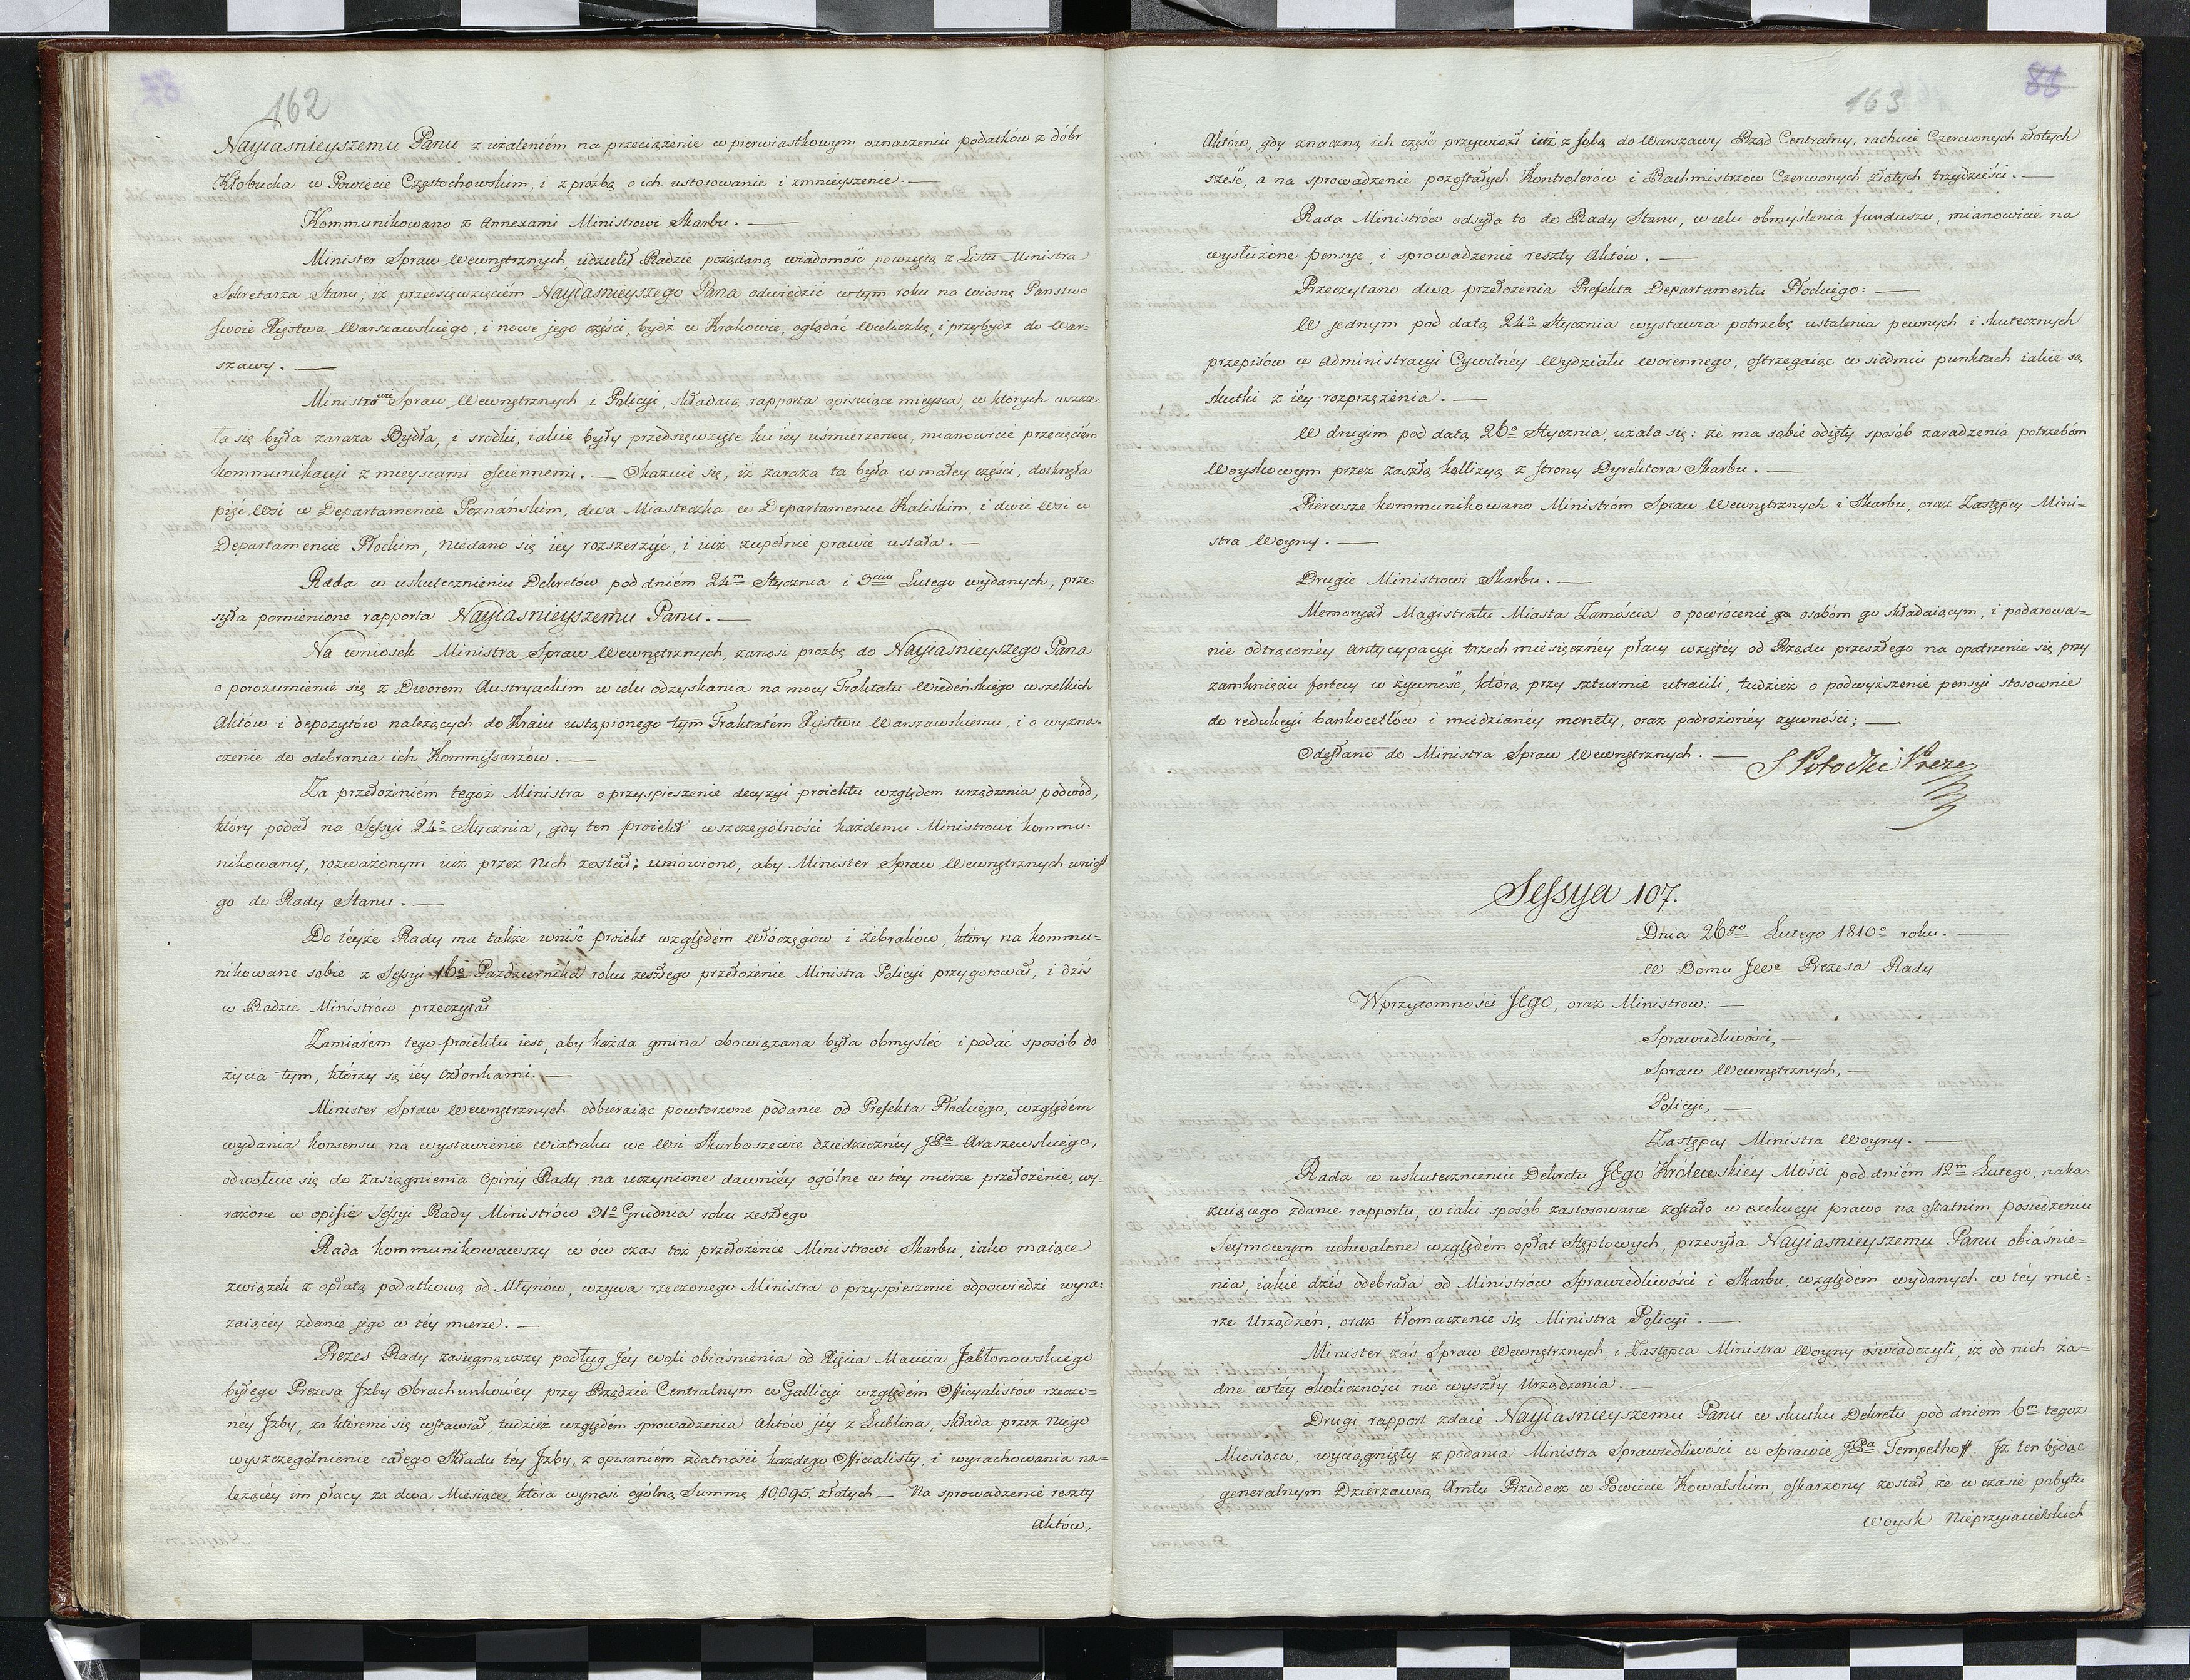 162
Nayiasnieyszemu Panu z uzaleniém na przeciążenie w pierwiastkowym oznaczeniu podatków z dóbr
Kłobucka w Powiecie Częstochowskim, i z proźbą o ich ustosowanie i zmnieyszenie. —
Kommunikowano z Annexami Ministrowi Skarbu. —
Minister Spraw Wewnętrznych udzielił Radzie pożądaną wiadomość powziętą z Listu Ministra
Sekretarza Stanu; iż przedsięwzięciém Nayiasnieyszego Pana odwiedzić w tym roku na wiosnę Panstwo
swoie Xięstwa Warszawskiego, i nowe jego części, bydź w Krakowie, oglądać Wieliczkę, i przybydź do War=
szawy. —
Ministrowie Spraw Wewnętrznych i Policyi, składaią rapporta opisuiące mieysca, w których wszcze=
ła się była zaraza Bydła, i srodki, iakie były przedsięwzięte ku iey uśmierzeniu, mianowicie przecięciém
kommunikacyi z mieyscami ościennemi. — Okazuie się, iż zaraza ta była w małey części, dotknęła
pięć Wsi w Departamencie Poznańskim, dwa Miasteczka w Departamencie Kaliskim, i dwie Wsi w
Departamencie Płockim, niedano się iéy rozszerzyć, i iuż zupełnie prawie ustała. —
Rada w uskutecznieniu Dekretów pod dniém 24m Stycznia i 3ciu Lutego wydanych, prze=
syła pomienione rapporta Nayiasnieyszemu Panu. —
Na wniosek Ministra Spraw Wewnętrznych, zanosi prozbę do Nayiasnieyszego Pana
o porozumienie się z Dworem Austryackim w celu odzyskania na mocy Traktatu Wiedeńskiego wszelkich
Aktów i depozytów należących do Kraiu ustąpionego tym Traktatém Xięstwu Warszawskiemu, i o wyzna=
czenie do odebrania ich Kommissarzów. —
Za przełożeniém tegoż Ministra o przyspieszenie decyzyi proiektu względem urządzenia podwód,
który podał na Sessyi 24o Stycznia, gdy ten proiekt wszczególności każdemu Ministrowi kommu=
nikowany, rozważonym iuż przez nich został; umówiono, aby Minister Spraw Wewnętrznych wniosł
go do Rady Stanu. —
Do téyże Rady ma także wniść proiekt względém Włóczęgów i Żebraków, który na kommu=
nikowane sobie z Sessyi 16o Pazdziernika roku zeszłego przełożenie Ministra Policyi przygotował, i dziś
w Radzie Ministrów przeczytał
Zamiarém tego proiektu iest, aby każda gmina obowiązana była obmyśleć i podać sposób do
życia tym, którzy są iéy członkami. —
Minister Spraw Wewnętrznych odbieraiąc powtorzone podanie od Prefekta Płockiego, względém
wydania konsensu na wystawienie Wiatraku we Wsi Skarboszewie dziedzicznéy JPa Araszewskiego,
odwołuie się do zasiągnienia Opinij Rady na uczynione dawniéy ogólne w téy mierze przełożenie, wy=
rażone w opisie Sessyi Rady Ministrów 31o Grudnia roku zeszłego
Rada kommunikowawszy w ów czas toż przełożenie Ministrowi Skarbu, iako maiące
związek z opłatą podatkową od Młynów, wzywa rzeczonego Ministra o przyspieszenie odpowiedzi wyra=
zaiącéy zdanie jego w téy mierze. —
Prezes Rady zasięgnąwszy podług Jéy woli obiaśnienia od Xięcia Macieia Jabłonowskiego
byłego Prezesa Jzby Obrachunkowéy przy Rządzie Centralnym w Gallicyi względém Officyalistów rzeczo=
néy Jzby, za któremi się wstawiał, tudzież względém sprowadzenia Aktów jéy z Lublina, składa przez niego
wyszczególnienie całego Składu téy Jzby, z opisaniém zdatności każdego Officialisty, i wyrachowania na=
leżącéy im płacy za dwa Miesiące, która wynosi ogólną Summę 10,095. złotych — Na sprowadzenie reszty
Aktów,
163
88
Aktów, gdy znaczną ich część przywiozł iuż z sobą do Warszawy Rząd Centralny, rachuie Czerwonych złotych
sześć, a na sprowadzenie pozostałych Kontrolerów i Rachmistrzów Czerwonych złotych trzydzieści. —
Rada Ministrów odsyła to do Rady Stanu, w celu obmyślenia funduszu, mianowicie na
wysłużone pensye, i sprowadzenie reszty Aktów. —
Przeczytano dwa przełożenia Prefekta Departamentu Płockiego: —
W jednym pod datą 24o Stycznia wystawia potrzebę ustalenia pewnych i skutecznych
przepisów w Administracyi Cywilnéy Wydziału woiennego, ostrzegaiąc w siedmiu punktach iakie są
skutki z iéy rozprzężenia. —
W drugim pod datą 26o Stycznia, uzala się: że ma sobie odięty sposób zaradzenia potrzebóm
Woyskowym przez zaszłą kollizyą z strony Dyrektora Skarbu. —
Pierwsze kommunikowano Ministróm Spraw Wewnętrznych i Skarbu, oraz Zastępcy Mini=
stra Woyny. —
Drugie Ministrowi Skarbu. —
Memoryał Magistratu Miasta Zamościa o powrócenie osobóm go składaiącym, i podarowa=
nie odtrąconéy antycypacyi trzech miesięcznéy płacy wziętéy od Rządu przeszłego na opatrzenie się przy
zamknięciu fortecy w żywność, którą przy szturmie utracili, tudzież o podwyższenie pensyi stosownie
do redukcyi bankocetlów i miedzianéy monety, oraz podrożonéy zywności; —
Odesłano do Ministra Spraw Wewnętrznych. —
S Potocki Prezes
Sessya 107.
Dnia 26go Lutego 1810o roku. —
W Domu JWo Prezesa Rady
W przytomności Jego, oraz Ministrow: —
Sprawiedliwości, —
Spraw Wewnętrznych, —
Policyi, —
Zastępcy Ministra Woyny. —
Rada w uskutecznieniu Dekretu JEgo Królewskiéy Mości pod dniém 12m Lutego, naka=
zuiącego zdanie rapportu, w iaki sposób zastosowane zostało w exekucyi prawo na ostatnim posiedzeniu
Seymowym uchwalone względém opłat Stęplowych, przesyła Nayiasnieyszemu Panu obiaśnie=
nia, iakie dziś odebrała od Ministrów Sprawiedliwości i Skarbu, względém wydanych w téy mie=
rze Urządzeń, oraz tłomaczenie się Ministra Policyi. —
Minister zaś Spraw Wewnętrznych i Zastępca Ministra Woyny oświadczyli, iż od nich ża=
dne w téy okoliczności nie wyszły Urządzenia. —
Drugi rapport zdaie Nayiasnieyszemu Panu w skutku Dekretu pod dniem 6m tegoz
Miesiąca, wyciągnięty z podania Ministra Sprawiedliwości w Sprawie JPa Tempelhoff. Jż ten będąc
generalnym Dzierzawcą Amtu Przedecz w Powiecie Kowalskim, oskarzony został, że w czasie pobytu
Woysk Nieprzyiacielskich